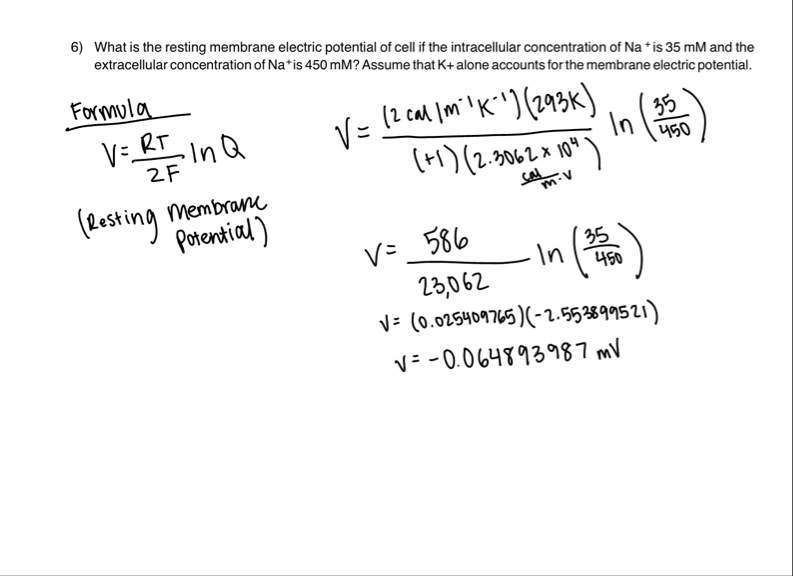 6) What is the resting membrane electric potential of cell if the intracellular concentration of Na + is 35 mM and the
extracellular concentration of Na+ is 450 mM? Assume that K+ alone accounts for the membrane electric potential.
Formula
V = RT/ZF ln Q
(Resting Membrane
Potential)
V = (2 cal/m⁻¹K⁻¹)(293K) / (+1)(2.3062 × 10⁴ cal/m·V) ln (35/450)
V = 586/23,062 ln (35/450)
V = (0.025409765)(-2.553899521)
V = -0.064893987 mV